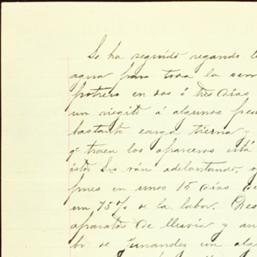 Se ha seguido regando t
agua para toda la sem
potrero en dos ó tres días
un riegito á algunos
bastante carga tierna y
q. traen los aparceros está
van adelantando,
pues en unos 15 días
un 75% de la labor. Des
aparatos de lluvia y an
de Fernandez con